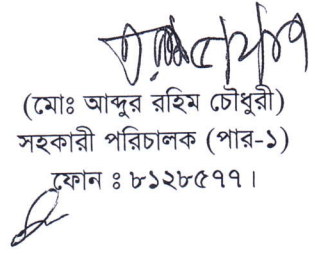 (মোঃ আব্দুর রহিম চৌধুরী)
সহকারী পরিচালক (পার-১)
ফোন ঃ ৮১২৮৫৭৭।